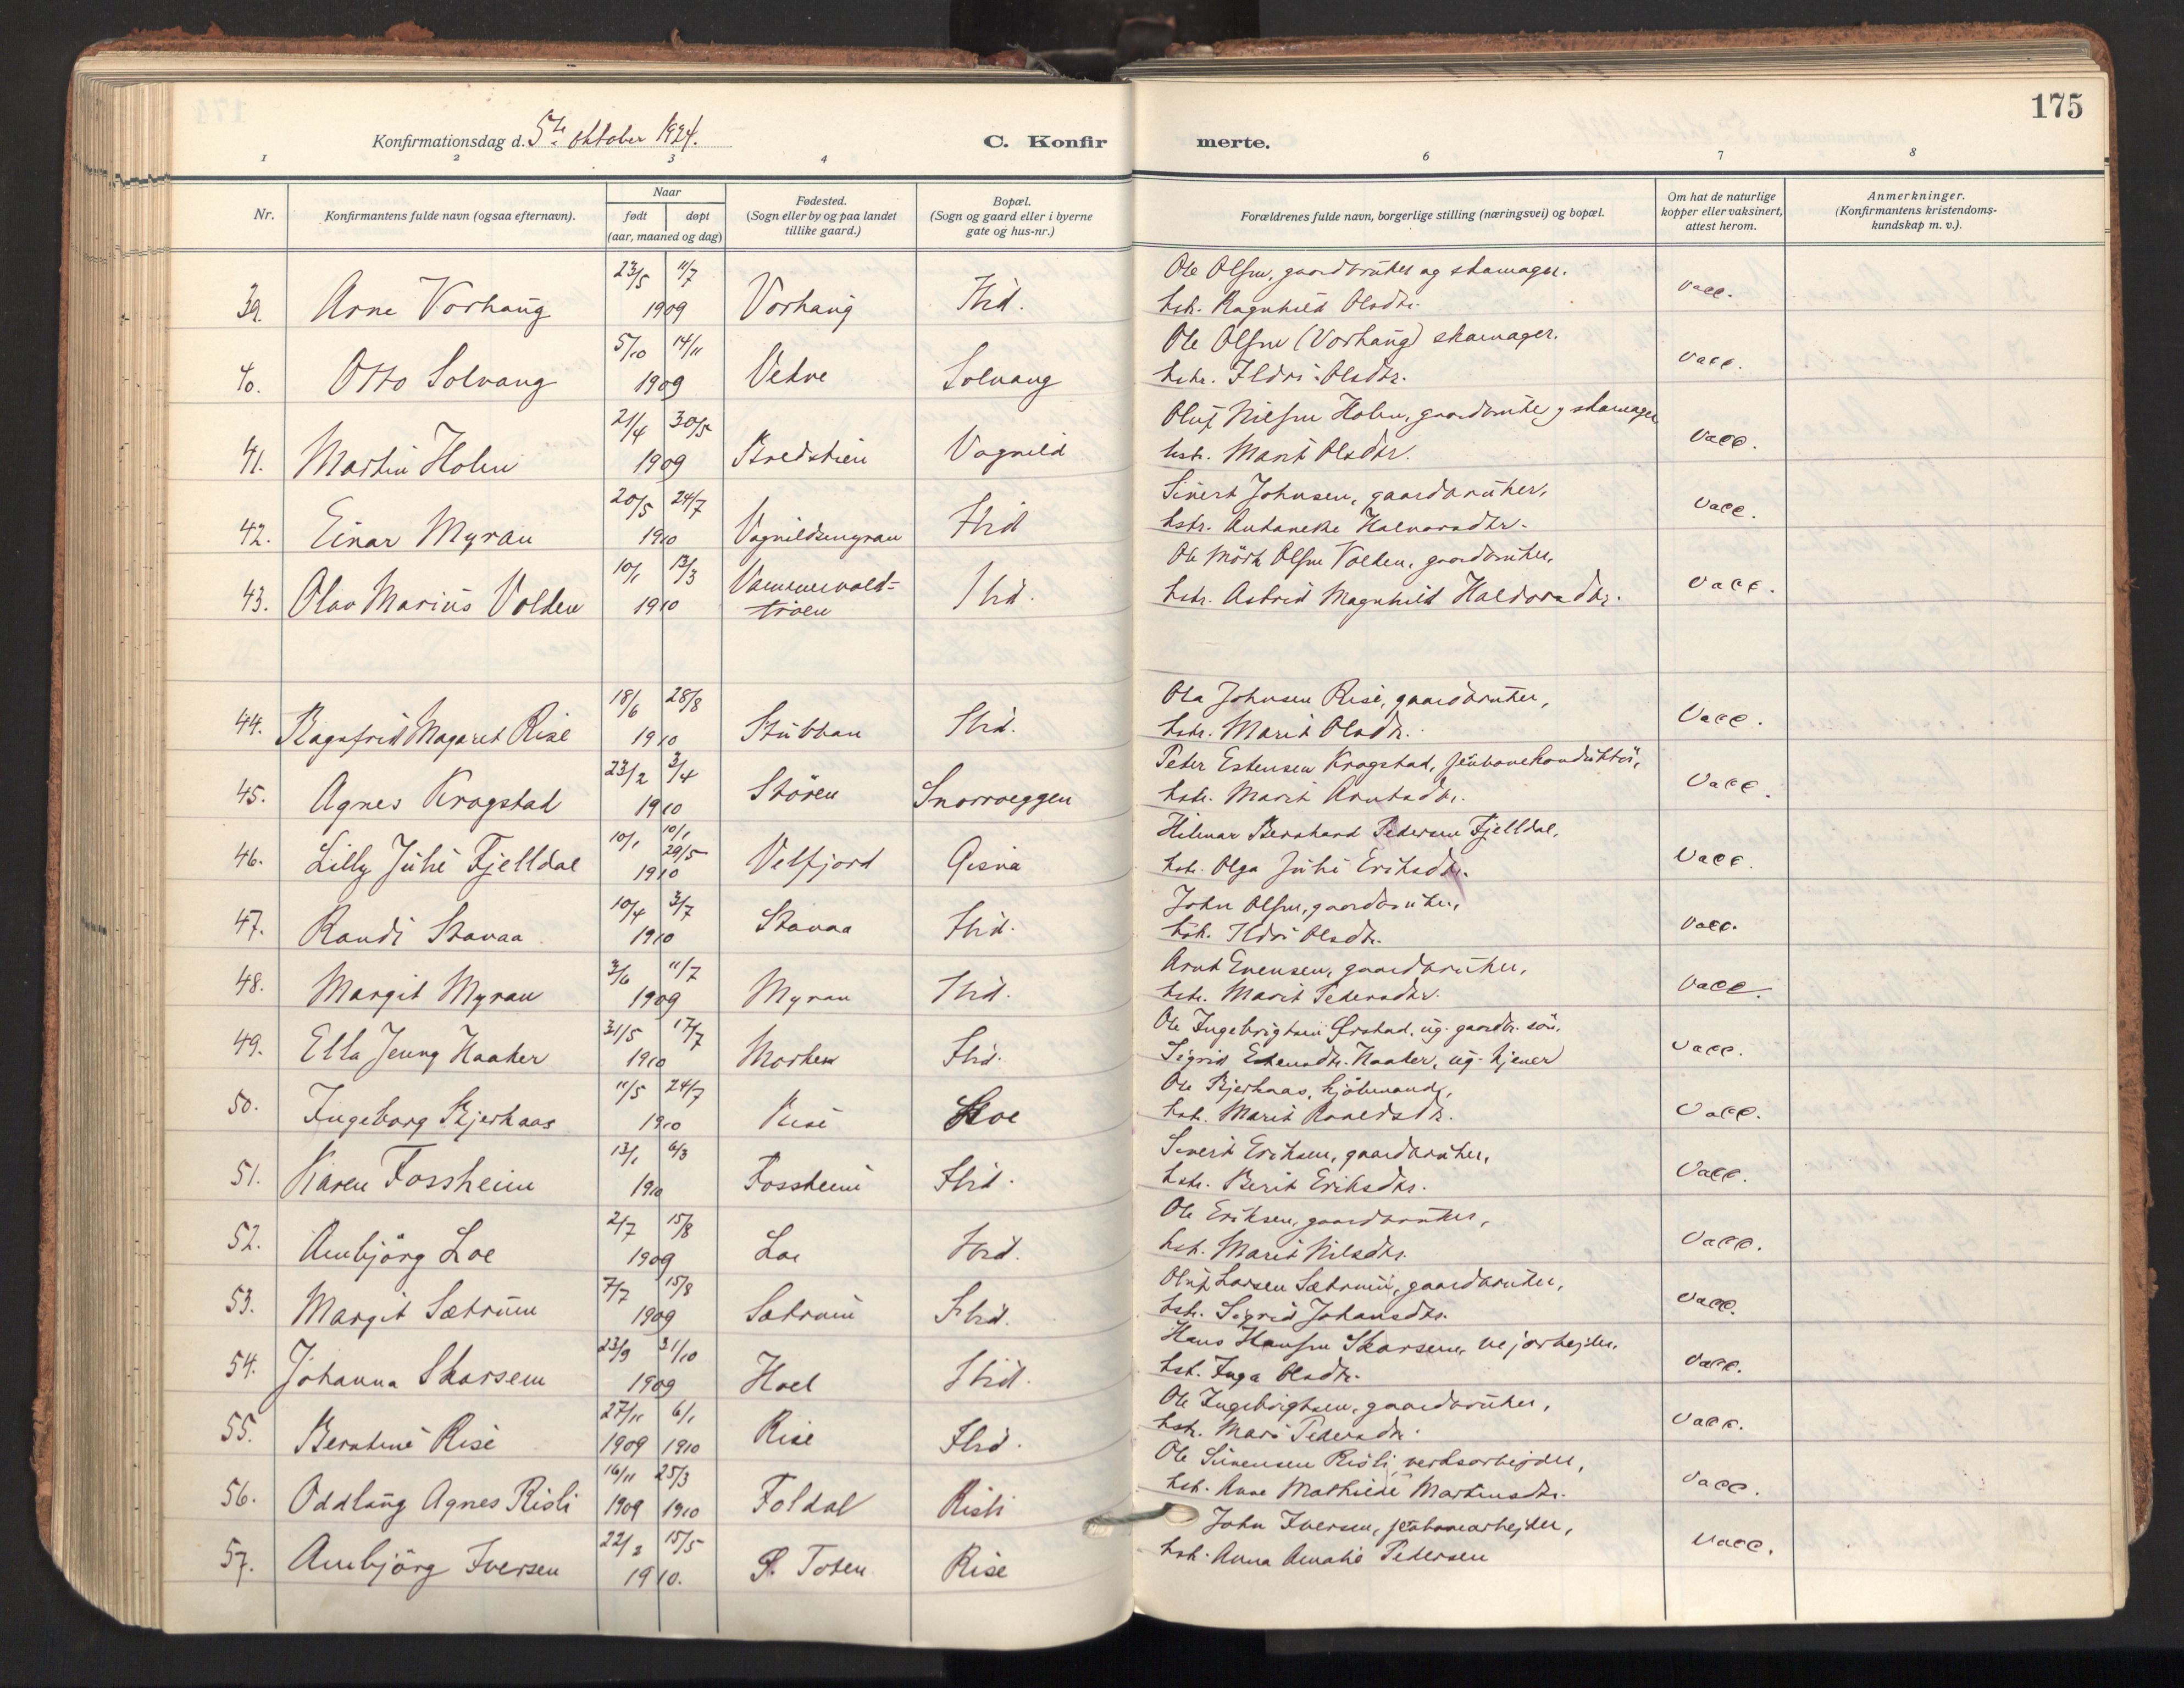 175
Konfirmationsdag d. 5te oktober 1924. C. Konfirmerte.
1 2 3 4 6 7 8
Nr. Konfirmantens fulde navn (ogsaa efternavn). Naar født døpt (aar, maaned og dag) Fødested. (Sogn eller by og paa landet tillike gaard.) Bopæl. (Sogn og gaard eller i byerne gate og hus-nr.) Forældrenes fulde navn, borgerlige stilling (næringsvei) og bopæl. Om hat de naturlige kopper eller vaksinert, attest herom. Anmerkninger. (Konfirmantens kristendomskundskap m. v.).
23/5 11/7 Ole Olsen, gaardbruker og skomager.
39. Arne Vorhaug 1909 Vorhaug Ibid. hstr. Ragnhild Olsdtr. Vacc.
5/10 14/11 Ole Olsen (Vorhaug) skomager.
40. Otto Solvang 1909 Vekve Solvang hstr. Ildri Olsdtr. Vacc.
21/4 30/5 Oluf Nilsen Holm, gaardbruker og skomager
41. Martin Holm 1909 Vognild hstr. Marit Olsdtr. Vacc.
20/5 24/7 Sivert Johnsen, gaardbruker,
42. Einar Myran 1910 Vognildsmyran Ibid hstr. Halvorsdtr. Vacc.
10/1 13/3 Ole Mörk Olsen Volden, gaardbruker,
43. Olav Marius Volden 1910 Ibid. hstr. Astrid Magnhild Haldorsdtr. Vacc.
18/6 28/8 Ola Johnsen Rise, gaardbruker,
44. Ragnfrid Magaret Rise 1910 Stubban Ibid. hstr. Marit Olsdtr. Vacc.
23/2 3/4 Peter Estensen Krogstad, jernbanekonduktör,
45. Agnes Krogstad 1910 Stören Snorroeggen hstr. Marit Arntsdtr. Vacc.
10/1 10/1 29/5 Hilmar Bernhard Pedersen Fjelldal,
46. Lilly Julie Fjelldal 1910 Velfjord Gisna hstr. Olga Julie Eriksdtr. Vacc.
10/4 3/7 John Olsen, gaardbruker,
47. Randi Stavaa 1910 Stavaa Ibid. hstr. Ildri Olsdtr. Vacc.
3/6 11/7 Arnt Evensen, gaardbruker,
48. Margit Myran 1909 Myran Ibid. hstr. Marit Pedersdtr. Vacc.
31/5 17/7 Ole Ingebrigtsen ug. gaardbr. sön,
49. Ella Jenny Haaker 1910 Ibid. Sigrid Estensdtr. Haaker, ug. tjener Vacc.
11/5 24/7 Ole Bjerkaas,
50. Ingeborg Bjerkaas 1910 Rise Loe hstr. Marit Vacc.
13/1 6/3 Sivert Eriksen, gaardbruker,
51. Karen Fossheim 1910 Fossheim Ibid. hstr. Berit Eriksdtr. Vacc.
2/7 15/8 Ole Eriksen, gaardbruker,
52. Ambjörg Loe 1909 Loe Ibid. hstr. Marit Nilsdtr. Vacc.
7/7 15/8 Oluf Larsen Sætrum, gaardbruker,
53. Margit Sætrum 1909 Sætrum Ibid. hstr. Sigrid Johansdtr. Vacc.
23/9 31/10 Hans Hansen Skarsem, vejarbejder,
54. Johanna Skarsem 1909 Hoel Ibid. hstr. Inga Olsdtr. Vacc.
27/11 6/1 Ole Ingebrigtsen, gaardbruker,
55. Berntine Rise 1909 1910 Rise Ibid. hstr. Mari Pedersdtr. Vacc.
16/11 25/3 Ole Simensen Risli, verksarbejder,
56. Oddlaug Agnes Risli 1909 1910 Foldal Risli hstr. Anne Mathilde Martinsdtr. Vacc.
22/2 15/5 John Iversen, jernbanearbejder,
57. Ambjörg Iversen 1910. Toten Rise hstr. Anna Amalie Pedersen Vacc.